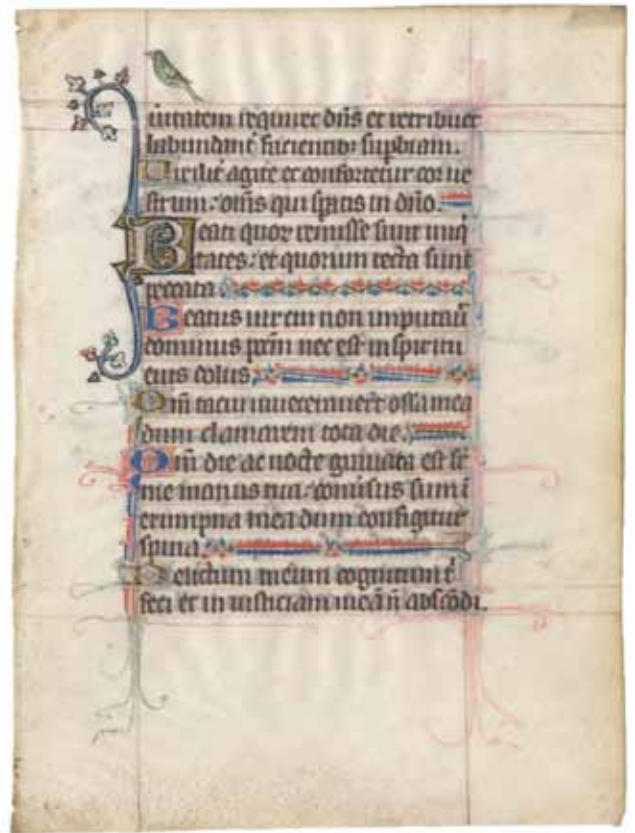 uitatem requiret dns et retribuet
habundant facientib superbiam.
Virilit agite et confortetur cor ue
strum: oms qui spatis in dno.
Beati quor remisse sunt iniq
tates: et quorum tecta sunt
peccata.
Beatus uir cui non imputau
dominus pccm nec est in spiritu
eius dolus.
Qm tacui inueterauert ossa mea
dum clamarem tota die.
Qm die ac nocte grauata est sr
me manus tua: conuersus sum i
erumpna mea dum configitur
spina.
Delictum meum cognitum t
feci et iniusticiam mea n abscodi.